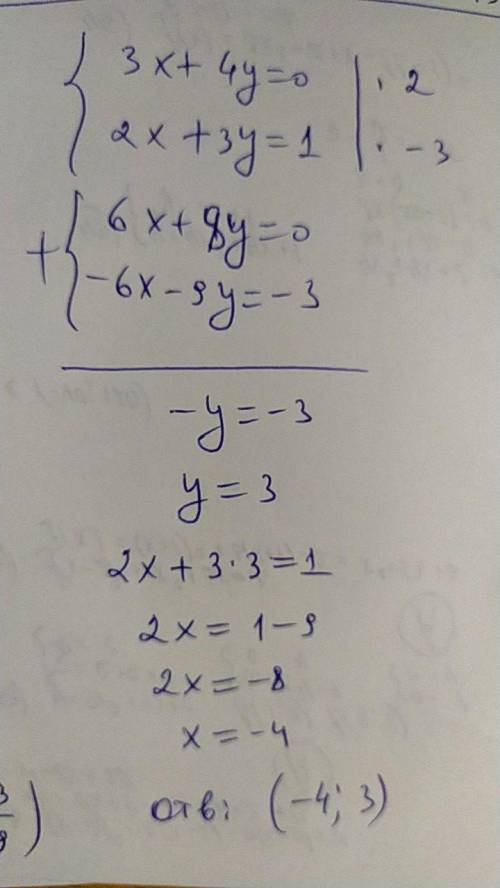 3x+4y=0 | · 2
2x+3y=1 | · -3
+ 6x+8y=0
-6x-9y=-3
-y=-3
y=3
2x+3·3=1
2x=1-9
2x=-8
x=-4
отв: (-4; 3)